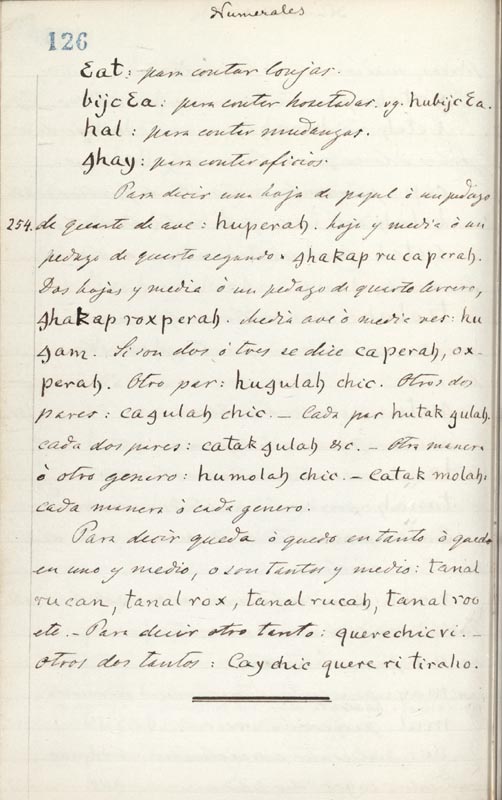 Numerales
126
Ɛat: para contar lonjas.
bijcƐa: para contar hosetadas. vg. hubijcƐa.
hal: para contar mudanzas.
ghay: para contar oficios.
Para decir una hoja de papel ò un pedazo
254. de quarto de ave: huperah. hoja y media ò un
pedazo de quarto segundo. ghakap ru caperah.
Dos hojas y media ò un pedazo de quarto tercero,
ghakap roxperah. Media ave ò media res: hu
gam. Si son dos ó tres se dice caperah, ox-
perah. Otro par: hugulah chic. Otros dos
pares: cagulah chic. — Cada par hutak gulah.
cada dos pares: catak gulah &c. — Otra manera
ò otro genero: humolah chic. — catak molah:
cada manera ò cada genero.
Para decir queda ò quedo en tanto ò quedo
en uno y medio, o son tantos y medio: tanal
rucan, tanal rox, tanal rucah, tanal roo
etc. — Para decir otro tanto: querechicri. —
otros dos tantos: Cay chic quere ri tiraho.